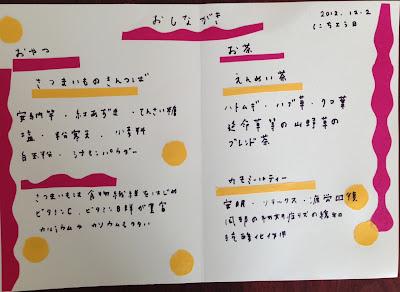 おしながき
2012.12.2
にちよう日
おやつ
さつまいものきんつば
安納芋・紅あずき・てんさい糖
塩・粉寒天・小麦粉
白玉粉・シナモンパウダー
さつまいもは食物繊維をはじめ
ビタミンC、ビタミンB群が豊富
カルシウムやカリウムもたっぷり
お茶
えんめい茶
ハトムギ・ハブ草・クコ葉
延命草等の山野草の
ブレンド茶
カモミールティー
安眠・リラックス・疲労回復
風邪の初期症状の緩和
抗酸化作用